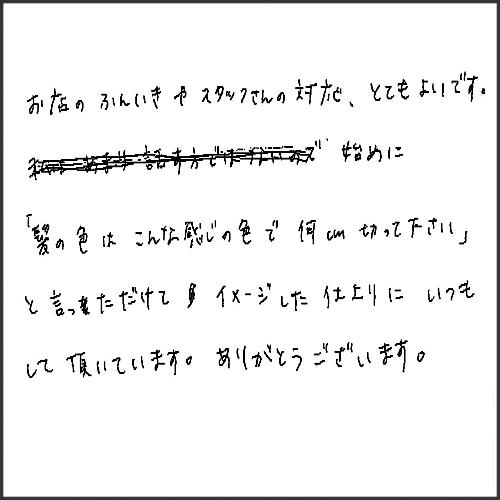 お店の ふんいきや スタッフさんの 対応、とてもよいです。
始めに
「髪の色は こんな感じの色で 何cm 切って下さい」
と言っただけで イメージした 仕上りに いつも
して頂いています。ありがとうございます。